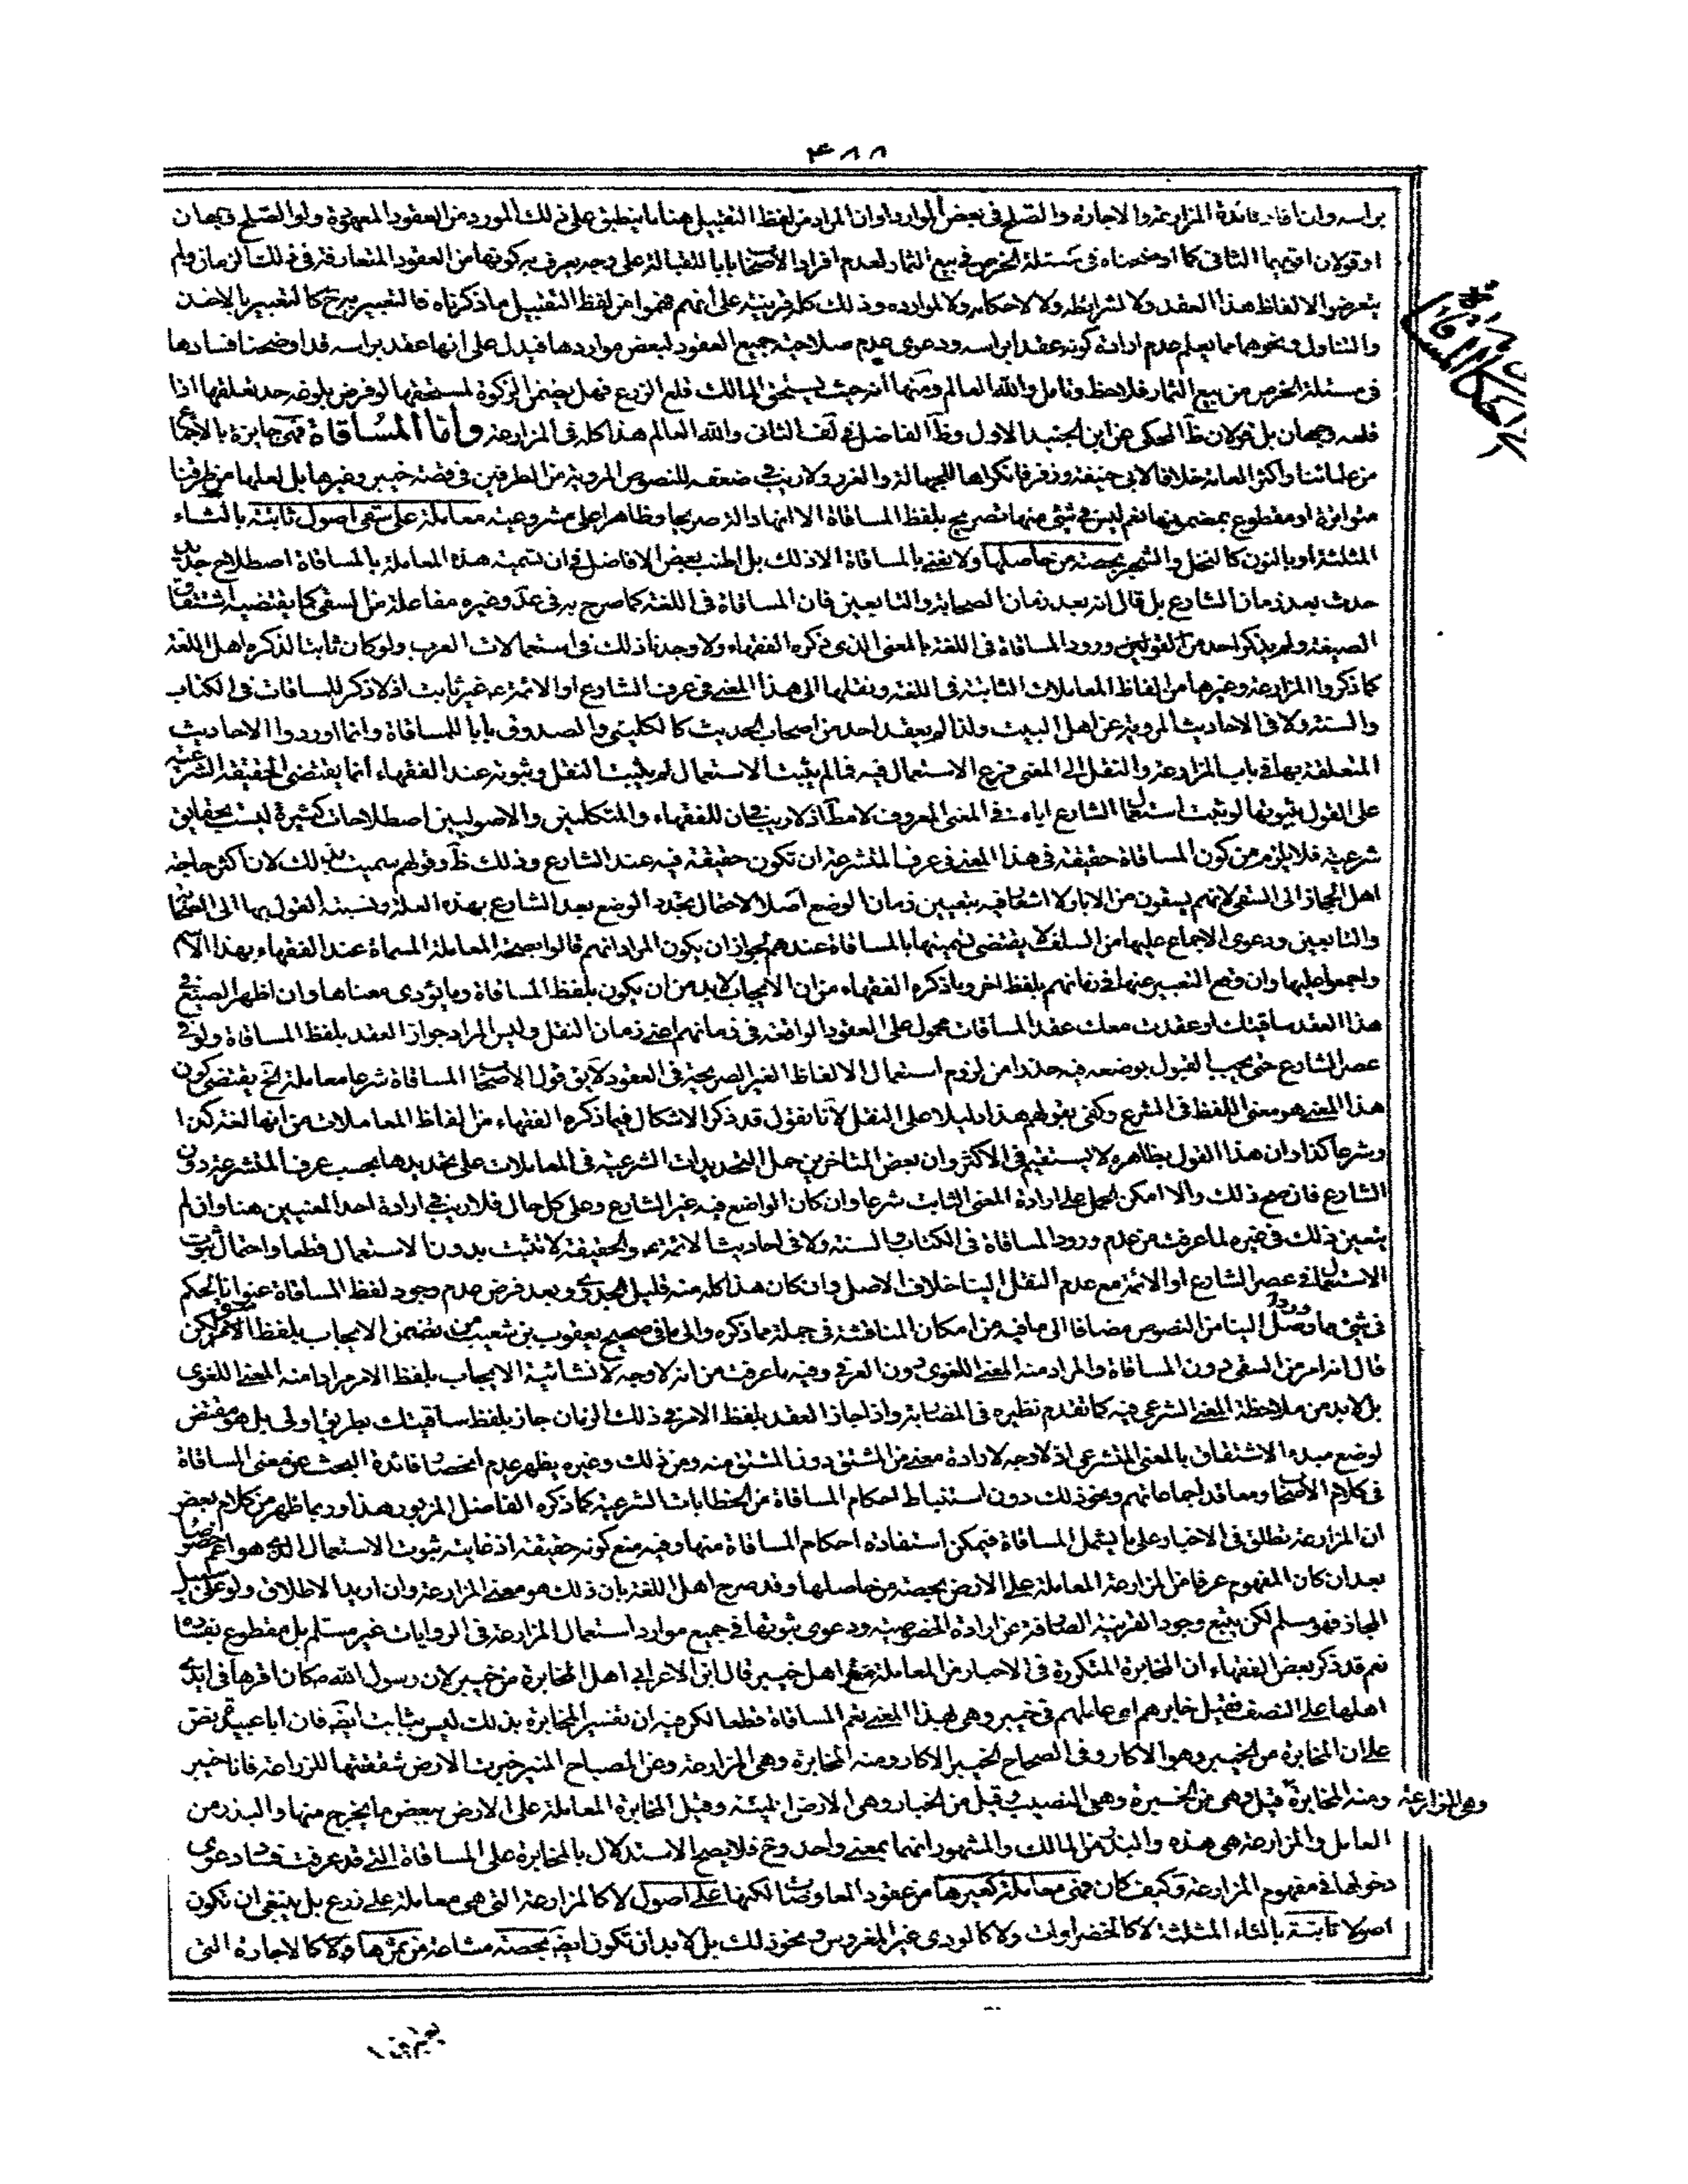 ۴۸۸
براسه وان افاد فائدة المزارعة والاجارة والصلح فى بعض الموارد او ان المراد من لفظ التقبيل هنا ما ينطبق على ذلك المورد من العقود المعهودة ولو الصلح وجهان
او قولان اقويهما الثانى كما اوضحناه فى مسئلة الخرص فى بيع الثمار لعدم افراد الأصحاب بابا للقبالة على وجه يعرف به كونها من العقود المتعارفة فى ذلك الزمان ولم
يتعرضوا لالفاظ هذا العقد ولا لشرائطه ولا لاحكامه ولا لموارده وذلك كله قرينة على انهم فهموا من لفظ التقبيل ما ذكرناه فالتعبير به ح كالتعبير بالاخذ
والتناول ونحوهما مما يعلم عدم ارادة كونه عقدا براسه ودعوى عدم صلاحية جميع العقود لبعض مواردها فيدل على انها عقد براسه قد اوضحنا فسادها
فى مسئلة الخرص من بيع الثمار فلاحظ وتامل والله العالم ومنها انه حيث يستحق المالك قلع الزرع فهل يضمن الزكوة لمستحقها لو فرض بلوغه حد تعلقها اذا
قلعه وجهان بل قولان ظ المحكى عن ابن الجنيد الاول وظ الفاضل فى لف الثانى والله العالم هذا كله فى المزارعة وأمّا المُسَاقاة فهى جايزة بالاجماع
من علمائنا واكثر العامة خلافا لابى حنيفة وزفر فانكراها للجهالة والغرر ولا ريب فى ضعفه للنصوص المروية من الطرفين فى قصة خيبر وغيرها بل لعلها من طرقنا
متواترة او مقطوع بمضمونها نعم ليس فى شئ منها تصريح بلفظ المساقاة الا انها دالة صريحا وظاهرا على مشروعية معاملة على سقى اصول ثابتة بالثاء
المثلثة او بالنون كالنخل والشجر بحصة من حاصلها ولا نعنى بالمساقاة الا ذلك بل اطنب بعض الافاضل فى ان تسمية هذه المعاملة بالمساقاة اصطلاح جديد
حدث بعد زمان الشارع بل قال انه بعد زمان الصحابة والتابعين فان المساقاة فى اللغة كما صرح به فى عد وغيره مفاعلة من السقى كما يقتضيه اشتقاق
الصيغة ولم يذكر احد من اللغويين ورود المساقاة فى اللغة بالمعنى الذى ذكره الفقهاء ولا وجدنا ذلك فى استعمالات العرب ولو كان ثابتا لذكره اهل اللغة
كما ذكروا المزارعة وغيرها من الفاظ المعاملات الثابتة فى اللغة ونقلها الى هذا المعنى فى عرف الشارع او الائمة ع غير ثابت اذ لا ذكر للمساقات فى الكتاب
والسنة ولا فى الاحاديث المروية عن اهل البيت ولذا لم يعقد احد من اصحاب الحديث كالكلينى والصدوق بابا للمساقاة وانما اوردوا الاحاديث
المتعلقة بها فى باب المزارعة والنقل الى المعنى فرع الاستعمال فيه فما لم يثبت الاستعمال لم يثبت النقل وثبوته عند الفقهاء انما يقتضى الحقيقة الشرعية
على القول بثبوتها لو ثبت استعمال الشارع اياه فى المعنى المعروف لا مطلقا اذ لا ريب فى ان للفقهاء والمتكلمين والاصوليين اصطلاحات كثيرة ليست بحقايق
شرعية فلا يلزم من كون المساقاة حقيقة فى هذا المعنى فى عرف المتشرعة ان تكون حقيقة فيه عند الشارع وذلك ظ وقولهم سميت بذلك لان اكثر حاجة
اهل الحجاز الى السقى لانهم يسقون من الابار لا اشعار فيه بتعيين زمان الوضع اصلا لاحتمال تجدد الوضع بعد الشارع بهذه العلة ونسبة القول بها الى الصحابة
والتابعين ودعوى الاجماع عليها من السلف لا يقتضى تسميتها بالمساقاة عندهم لجواز ان يكون المراد انهم قالوا بصحة المعاملة المسماة عند الفقهاء بهذا الاسم
واجمعوا عليها وان وقع التعبير عنها فى زمانهم بلفظ اخر وما ذكره الفقهاء من ان الايجاب لابد من ان يكون بلفظ المساقاة وما يؤدى معناها وان اظهر الصيغ فى
هذا العقد ساقيتك او عقدت معك عقد المساقات محمول على العقود الواقعة فى زمانهم اعنى زمان النقل وليس المراد جواز العقد بلفظ المساقاة ولو فى
عصر الشارع حتى يجب القول بوضعه فيه حذرا من لزوم استعمال الالفاظ الغير الصريحة فى العقود لا يق قول الأصحاب المساقاة شرعا معاملة الخ يقتضى كون
هذا المعنى هو معنى اللفظ فى الشرع وكفى بقولهم هذا دليلا على النقل لانا نقول قد ذكر الاشكال فيما ذكره الفقهاء من الفاظ المعاملات من انها لغة كذا
وشرعا كذا وان هذا القول بظاهره لا يستقيم فى الاكثر وان بعض المتاخرين حمل التحديدات الشرعية فى المعاملات على تحديدها بحسب عرف المتشرعة دون
الشارع فان صح ذلك والا امكن الحمل على ارادة المعنى الثابت شرعا وان كان الواضع فيه غير الشارع وعلى كل حال فلا ريب فى ارادة احد المعنيين هنا وان لم
يتعين ذلك فى غيره لما عرفت من عدم ورود المساقاة فى الكتاب والسنة ولا فى احاديث الائمة ع والحقيقة لا تثبت بدون الاستعمال قطعا واحتمال ثبوت
الاستعمال فى عصر الشارع او الائمة مع عدم النقل الينا خلاف الاصل وان كان هذا كله منه قليل الجدوى وبعد فرض عدم وجود لفظ المساقاة عنوانا لحكم
فى شئ مما وصل الينا من النصوص مضافا الى ما فيه من امكان المناقشة فى جملة مما ذكره والى ما فى صحيح يعقوب بن شعيب من تضمن الايجاب بلفظ الامر لكن
قال انه امر من السقى دون المساقاة والمراد منه المعنى اللغوى دون العرفى وفيه ما عرفت من انه لا وجه لانشائية الايجاب بلفظ الامر مرادا منه المعنى اللغوى
بل لابد من ملاحظة المعنى الشرعى فيه كما تقدم نظيره فى المضاربة واذا جاز العقد بلفظ الامر فى ذلك الزمان جاز بلفظ ساقيتك بطريق اولى بل هو مقتض
لوضع مبدء الاشتقاق بالمعنى المتشرعى اذ لا وجه لارادة معنى من المشتق دون المشتق منه ومن ذلك وغيره يظهر عدم انحصار فائدة البحث عن معنى المساقاة
فى كلام الأصحاب ومعاقد اجماعاتهم ونحو ذلك دون استنباط احكام المساقاة من الخطابات الشرعية كما ذكره الفاضل المزبور هذا وربما ظهر من كلام بعض
ان المزارعة تطلق فى الاخبار على ما يشمل المساقاة فيمكن استفادة احكام المساقاة منها وفيه منع كونه حقيقة اذ غايته ثبوت الاستعمال الذى هو اعم خصوصا
بعد ان كان المفهوم عرفا من المزارعة المعاملة على الارض بحصة من حاصلها وقد صرح اهل اللغة بان ذلك هو معنى المزارعة وان اريد الاطلاق ولو على سبيل
المجاز فهو مسلم لكن يتبع وجود القرينة الصارفة عن ارادة الخصوصية ودعوى ثبوتها فى جميع موارد استعمال المزارعة فى الروايات غير مسلم بل مقطوع بفساده
نعم قد ذكر بعض الفقهاء ان المخابرة المتكررة فى الاخبار من المعاملة مع اهل خيبر قال ابن الاعرابى اهل المخابرة من خيبر لان رسول الله ص كان اقرها فى ايدى
اهلها على النصف فقيل خابرهم اى عاملهم فى خيبر وهى بهذا المعنى تعم المساقاة قطعا لكن فيه ان تفسير المخابرة بذلك ليس بثابت ايضا فان ابا عبيدة نص
على ان المخابرة من الخبير وهو الاكار وفى الصحاح الخبير الاكار ومنه المخابرة وهى المزارعة وعن المصباح المنير خبرت الارض شققتها للزراعة فانا خبير
ومنه المخابرة وهى المزارعة قيل وهى من الخبرة وهى النصيب وقيل من الخبار وهى الارض اللينة وقيل المخابرة المعاملة على الارض ببعض ما يخرج منها والبذر من
العامل والمزارعة هى هذه والبذر من المالك والمشهور انهما بمعنى واحد وح فلا يصح الاستدلال بالمخابرة على المساقاة التى قد عرفت فساد دعوى
دخولها فى مفهوم المزارعة وكيف كان فهى معاملة كغيرها من عقود المعاوضات لكنها على اصول لا كالمزارعة التى هى معاملة على زرع بل ينبغى ان تكون
اصولا ثابتة بالثاء المثلثة لا كالخضراوات ولا كالودى غير المغروس ونحو ذلك بل لابد ان تكون ايضا بحصة مشاعة من ثمرها ولا كالاجارة التى